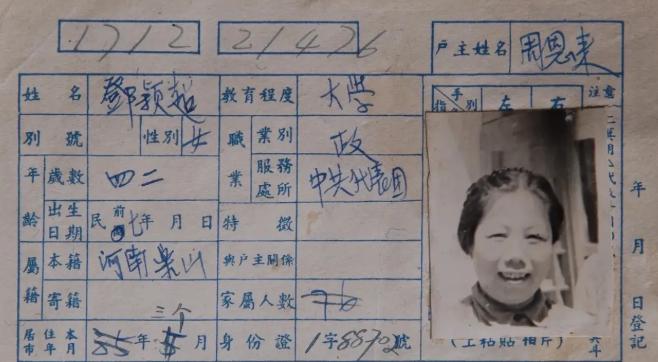 1712 21476
戶主姓名 周恩来
姓名 鄧颖超 教育程度 大學
手指別 左 右 注意
別號 性別 女 職業 業別 政
年齡 歲數 四二 服務處所 中共代表团
出生日期 民前七年 月 日 特徵
屬籍 本籍 河南 山 與戶主關係
寄籍 家屬人數
三个
居住本市年月 年 月 身份證 1字88702號
年 月 日登記